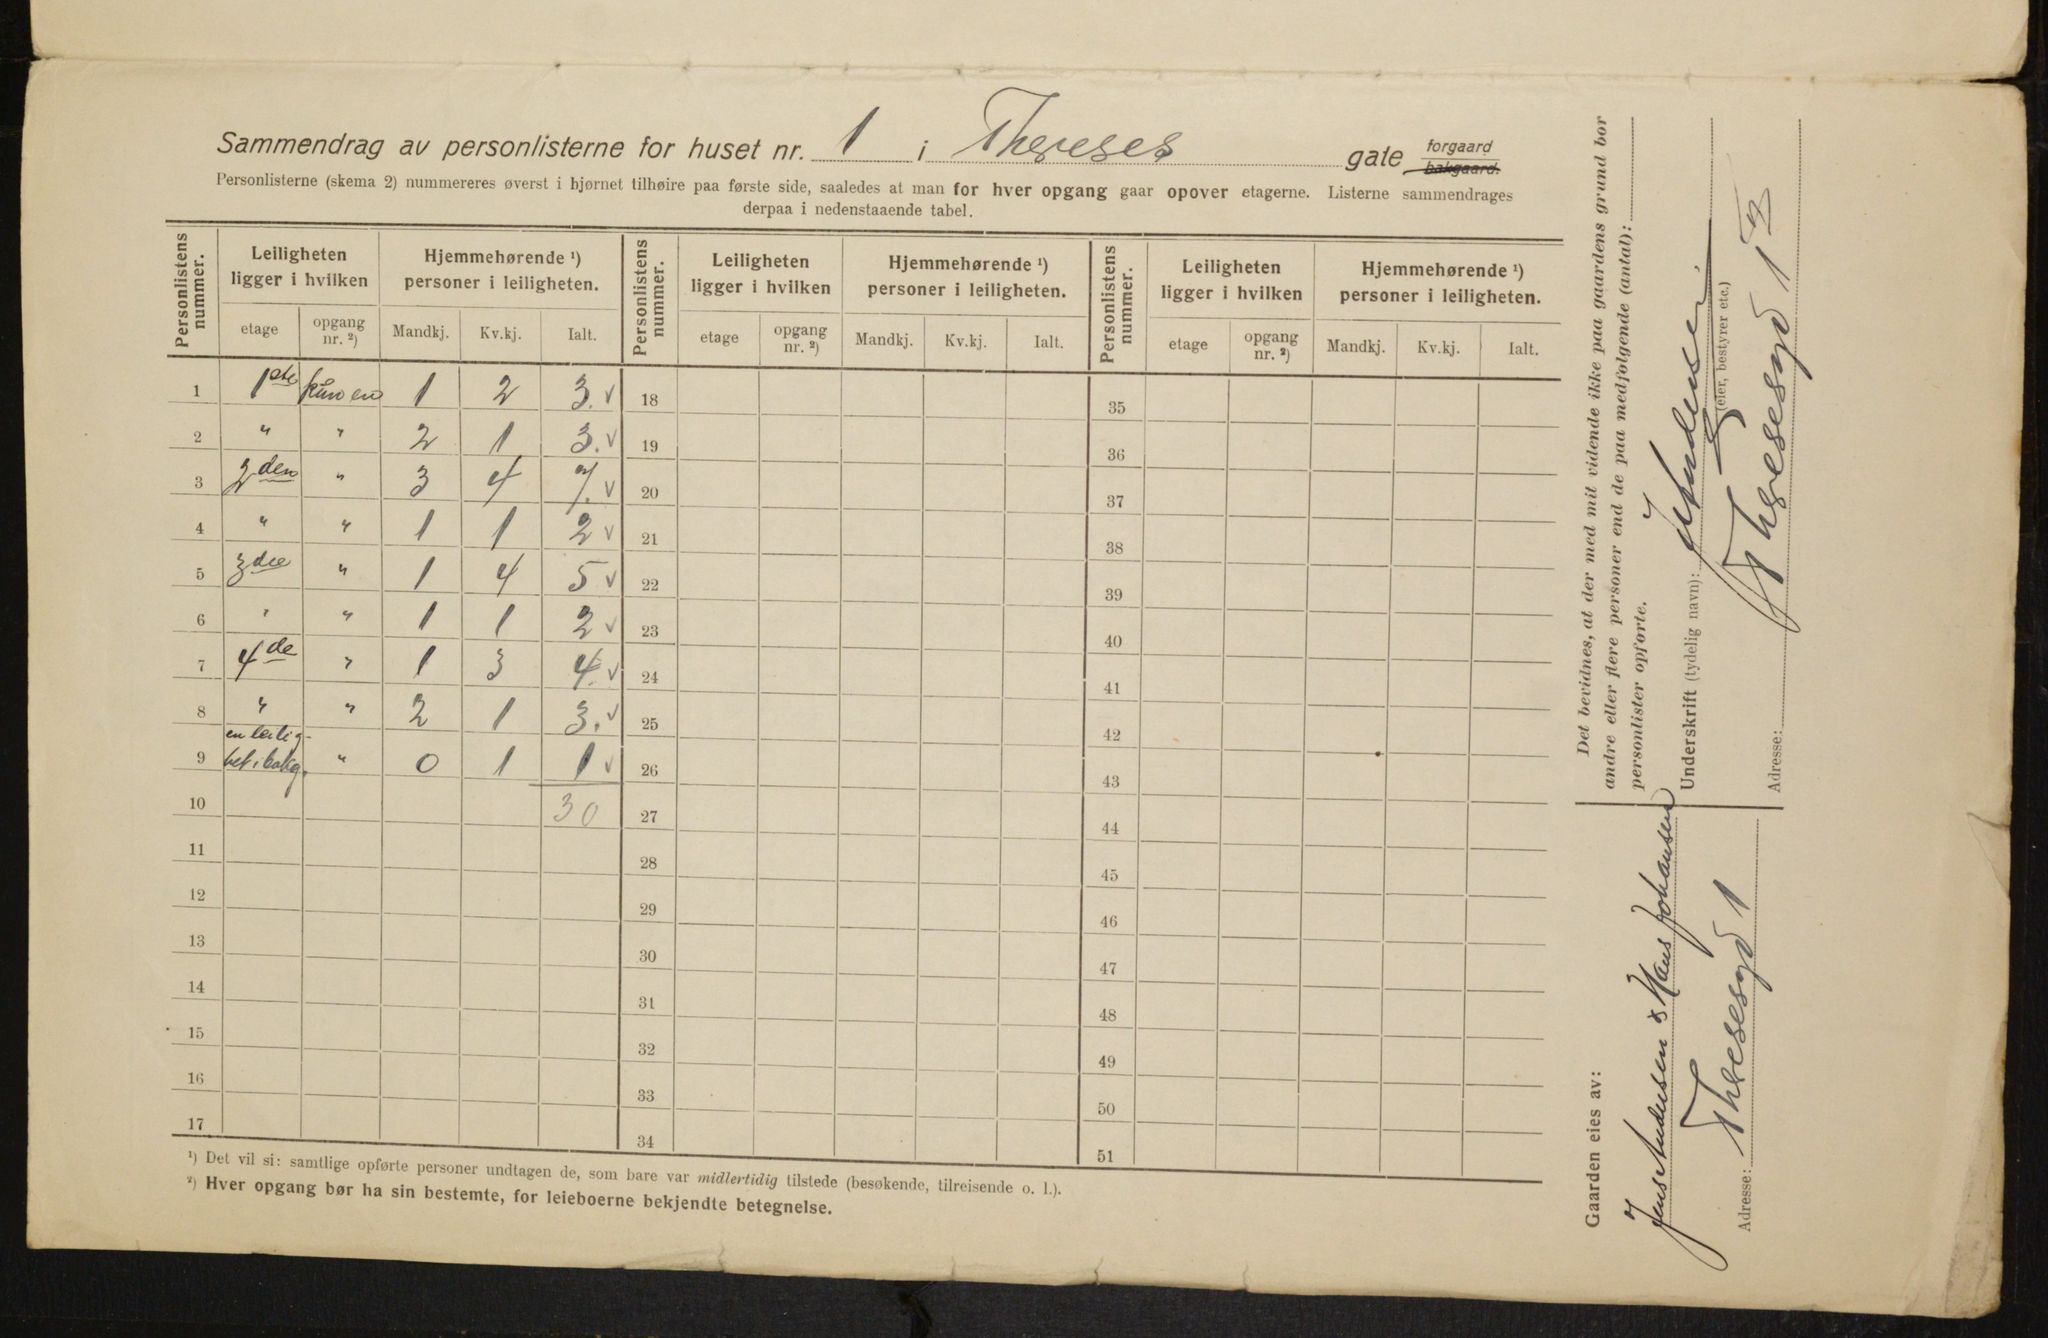 Sammendrag av personlisterne for huset nr. 1 i Thereses gate forgaard bakgaard.
Personlisterne (skema 2) nummereres øverst i hjørnet tilhøire paa første side, saaledes at man for hver opgang gaar opover etagerne. Listerne sammendrages
derpaa i nedenstaaende tabel.
Personlistens nummer. Leiligheten ligger i hvilken Hjemmehørende ¹) personer i leiligheten. Personlistens nummer. Leiligheten ligger i hvilken Hjemmehørende ¹) personer i leiligheten. Personlistens nummer. Leiligheten ligger i hvilken Hjemmehørende ¹) personer i leiligheten.
etage opgang nr. ²) Mandkj. Kv.kj. Ialt. etage opgang nr. ²) Mandkj. Kv.kj. Ialt. etage opgang nr. ²) Mandkj. Kv.kj. Ialt.
1 1ste kun en 1 2 3. √ 18 35
2 " " 2 1 3. √ 19 36
3 2den " 3 4 7. √ 20 37
4 " " 1 1 2 √ 21 38
5 3die " 1 4 5 √ 22 39
6 " " 1 1 2 √ 23 40
7 4de " 1 3 4. √ 24 41
8 " " 2 1 3. √ 25 42
9 en leilig-het i bakg. " 0 1 1 √ 26 43
10 30 27 44
11 28 45
12 29 46
13 30 47
14 31 48
15 32 49
16 33 50
17 34 51
¹) Det vil si: samtlige opførte personer undtagen de, som bare var midlertidig tilstede (besøkende, tilreisende o. l.).
²) Hver opgang bør ha sin bestemte, for leieboerne bekjendte betegnelse.
Det bevidnes, at der med mit vidende ikke paa gaardens grund bor
andre eller flere personer end de paa medfølgende (antal):
personlister opførte.
Underskrift (tydelig navn): J Andersen.
(eier, bestyrer etc.)
Adresse: Theresesgd 1
Gaarden eies av:
Jens Andersen & Hans Johansen
Adresse: Theresesgd 1